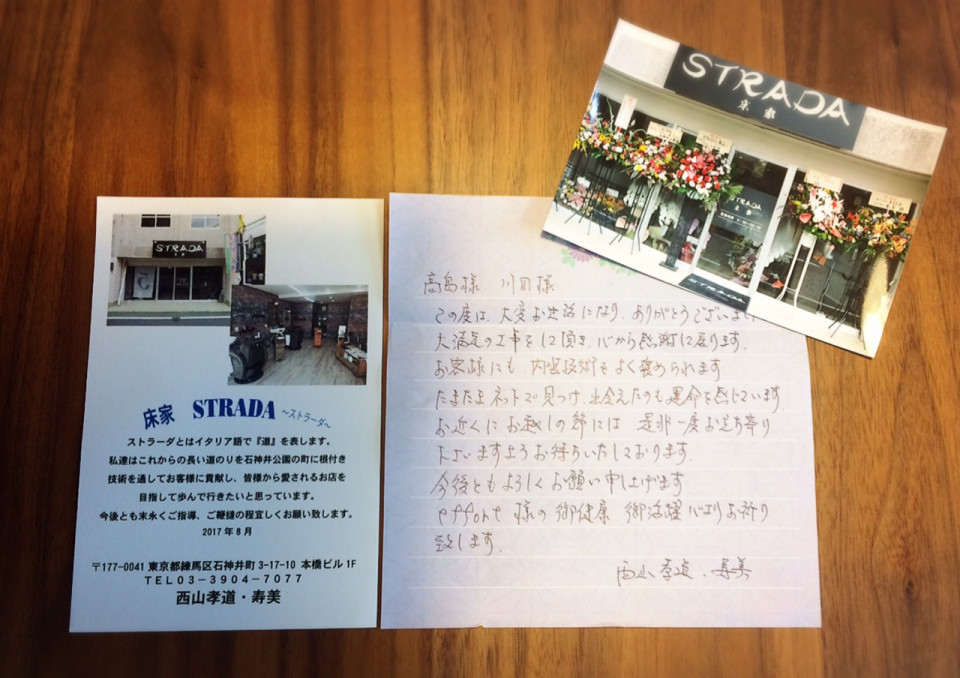 STRADA
床家
STRADA
床家
STRADA
STRADA
床家
床家 STRADA ～ストラーダ～
ストラーダとはイタリア語で『道』を表します。
私達はこれからの長い道のりを石神井公園の町に根付き
技術を通してお客様に貢献し、皆様から愛されるお店を
目指して歩んで行きたいと思っています。
今後とも末永くご指導、ご鞭撻の程宜しくお願い致します。
2017年8月
〒177-0041 東京都練馬区石神井町3-17-10 本橋ビル1F
TEL03-3904-7077
西山孝道・寿美
高島様 川田様
この度は、大変お世話になり、ありがとうございまし
大満足の工事をして頂き、心から感謝して居ります。
お客様にも 内装技術もよく褒められます
たまたまネットで見つけ、出会えたのも運命を感じています
お近くにお越しの節には 是非一度お立ち寄り
下さいますようお待ちいたしております。
今後ともよろしくお願い申し上げます
effort 様の御健康 御活躍心よりお祈り
致します。
西山孝道・寿美